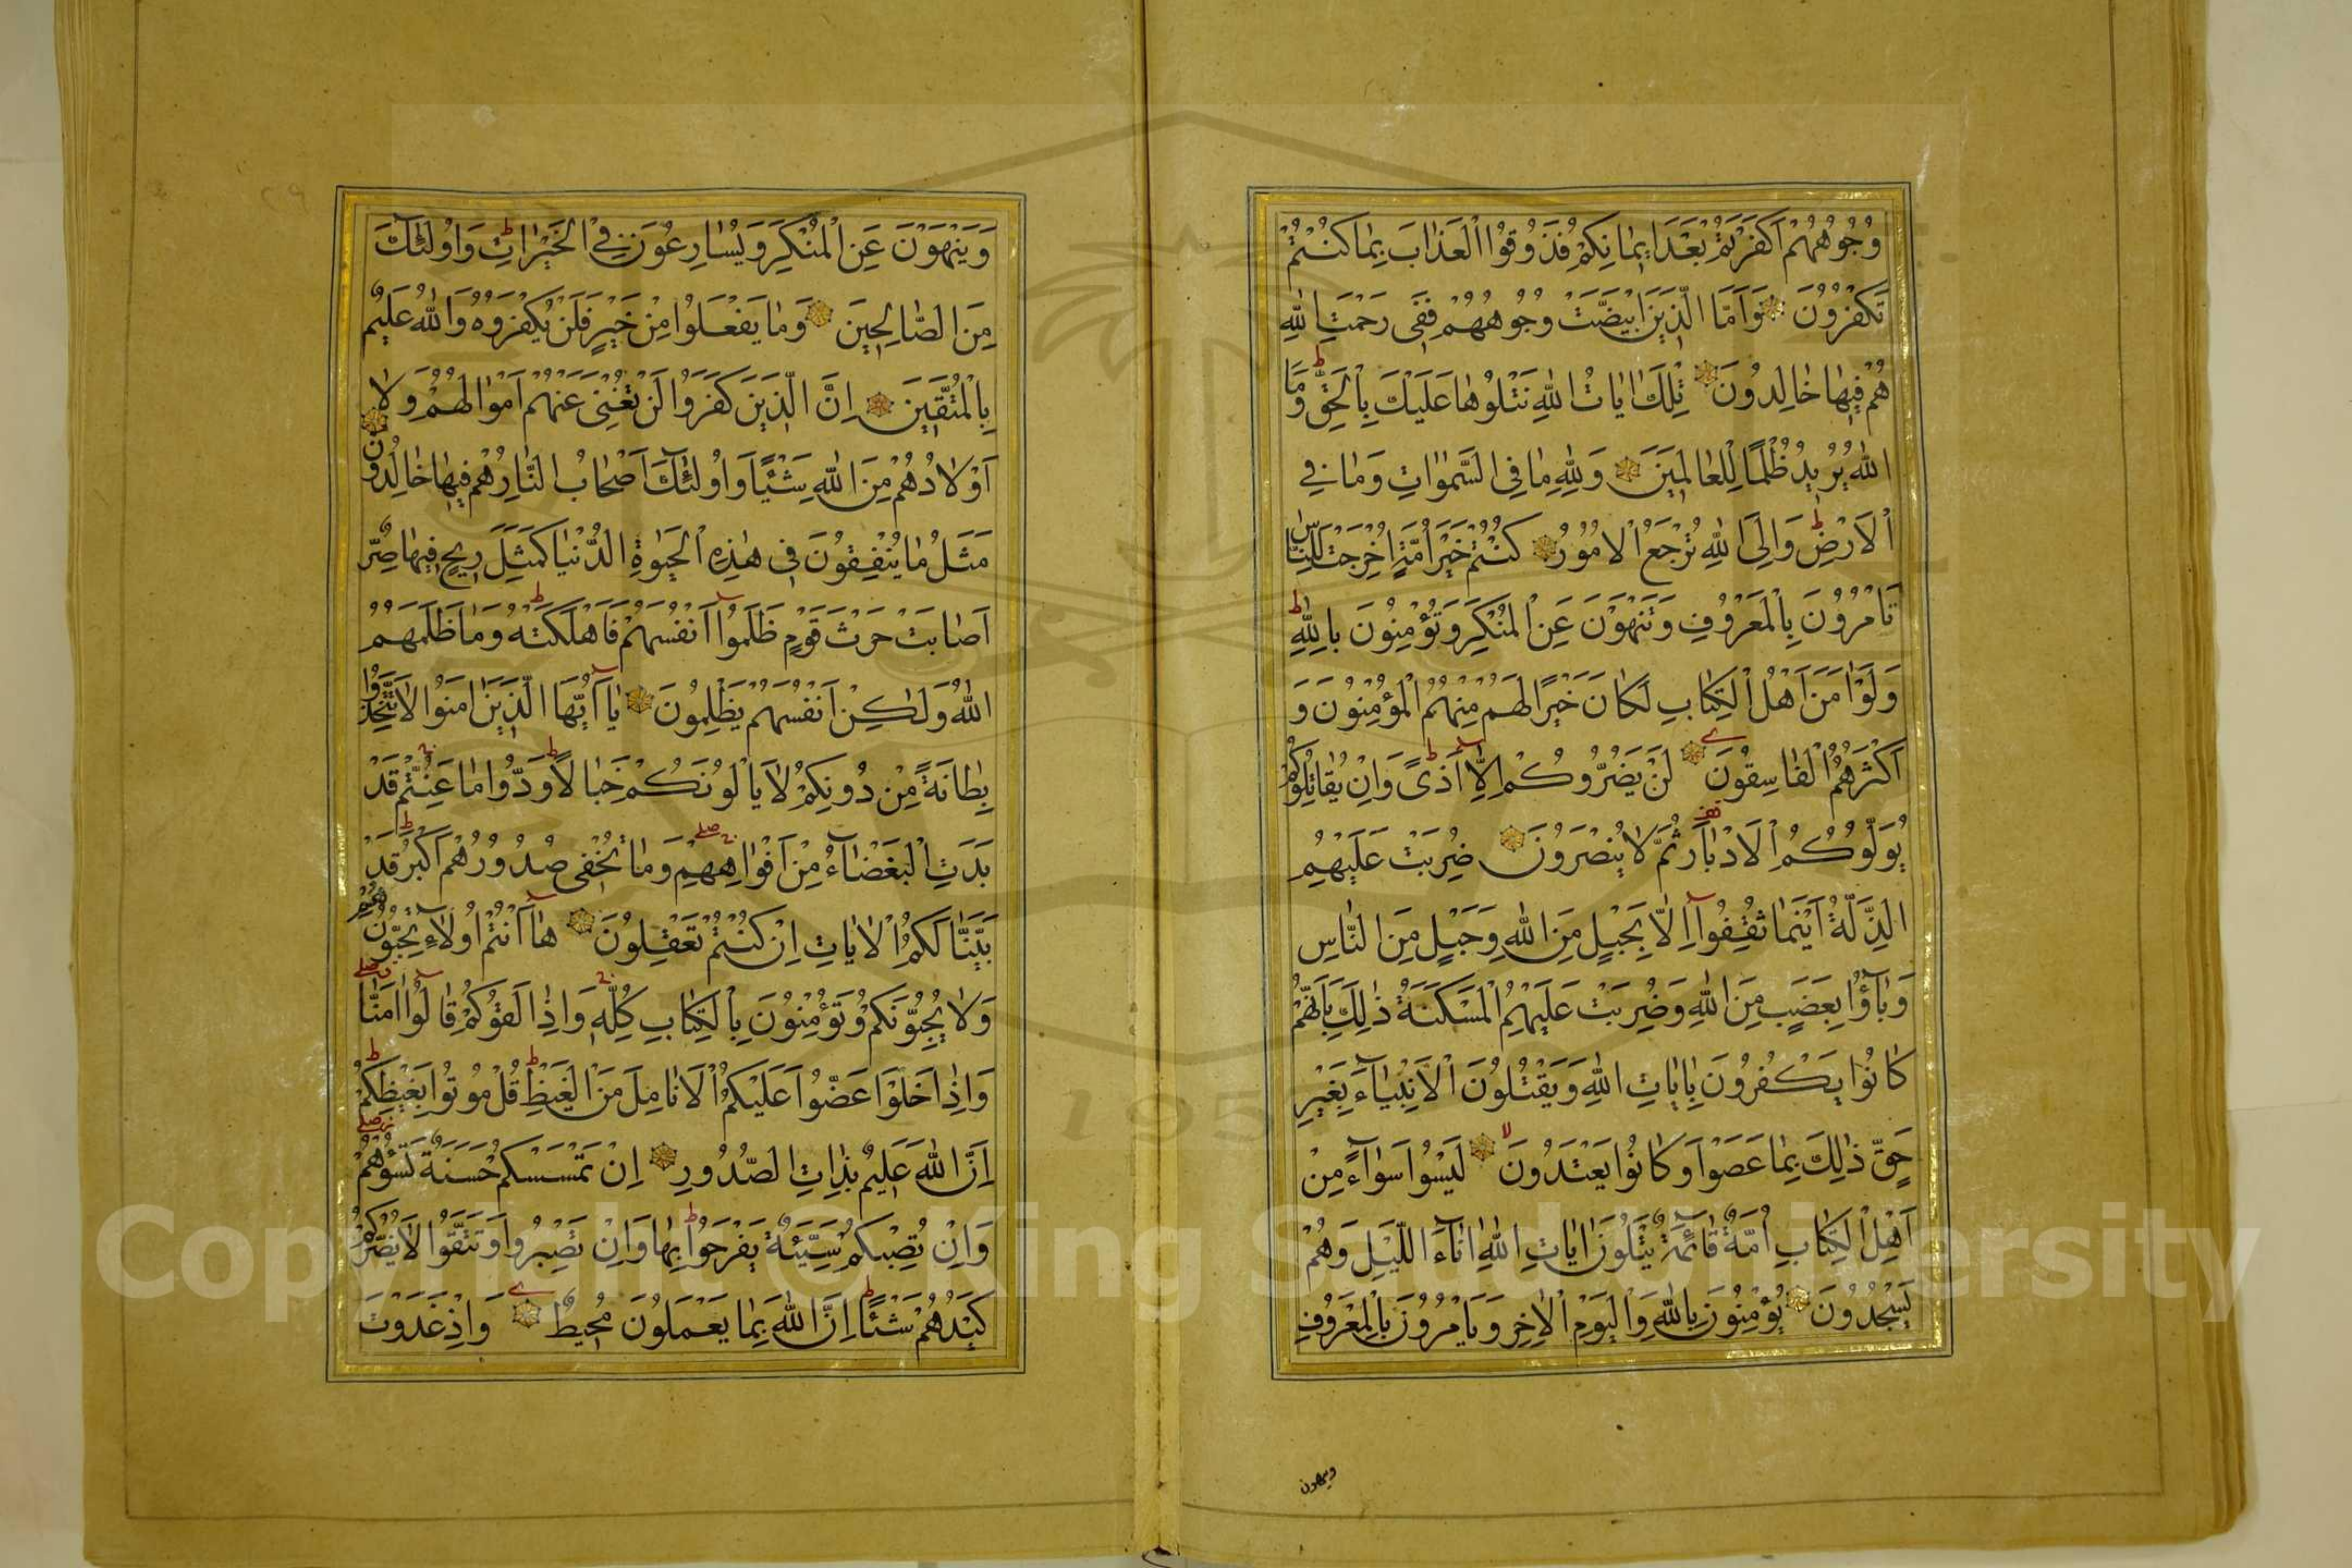 وُجُوهُهُمْ اَكَفَرْتُمْ بَعْدَ اٖيمٰانِكُمْ فَذُوقُوا الْعَذٰابَ بِمٰا كُنْتُمْ
تَكْفُرُونَ وَاَمَّا الَّذٖينَ ابْيَضَّتْ وُجُوهُهُمْ فَفٖى رَحْمَتِ اللّٰهِ
هُمْ فٖيهٰا خٰالِدُونَ تِلْكَ اٰيٰاتُ اللّٰهِ نَتْلُوهٰا عَلَيْكَ بِالْحَقِّ ط وَمَا
اللّٰهُ يُرٖيدُ ظُلْمًا لِلْعٰالَمٖينَ وَلِلّٰهِ مٰا فِى السَّمٰوٰاتِ وَمٰا فِي
الْاَرْضِ ط وَاِلَى اللّٰهِ تُرْجَعُ الْاُمُورُ كُنْتُمْ خَيْرَ اُمَّةٍ اُخْرِجَتْ لِلنّٰاسِ
تَاْمُرُونَ بِالْمَعْرُوفِ وَتَنْهَوْنَ عَنِ الْمُنْكَرِ وَتُؤْمِنُونَ بِاللّٰهِ ط
وَلَوْ اٰمَنَ اَهْلُ الْكِتٰابِ لَكٰانَ خَيْرًا لَهُمْ مِنْهُمُ الْمُؤْمِنُونَ وَ
اَكْثَرُهُمُ الْفٰاسِقُونَ لَنْ يَضُرُّوكُمْ اِلّٰٓا اَذًى ط وَاِنْ يُقٰاتِلُوكُمْ
يُوَلُّوكُمُ الْاَدْبٰارَ ثُمَّ لٰا يُنْصَرُونَ ضُرِبَتْ عَلَيْهِمُ
الذِّلَّةُ اَيْنَمٰا ثُقِفُوٓا اِلّٰا بِحَبْلٍ مِنَ اللّٰهِ وَحَبْلٍ مِنَ النّٰاسِ
وَبٰآؤُا بِغَضَبٍ مِنَ اللّٰهِ وَضُرِبَتْ عَلَيْهِمُ الْمَسْكَنَةُ ذٰلِكَ بِاَنَّهُمْ
كٰانُوا يَكْفُرُونَ بِاٰيٰاتِ اللّٰهِ وَيَقْتُلُونَ الْاَنْبِيٰآءَ بِغَيْرِ
حَقٍّ ذٰلِكَ بِمٰا عَصَوْا وَكٰانُوا يَعْتَدُونَ لا لَيْسُوا سَوٰآءً مِنْ
اَهْلِ الْكِتٰابِ اُمَّةٌ قٰآئِمَةٌ يَتْلُونَ اٰيٰاتِ اللّٰهِ اٰنٰآءَ اللَّيْلِ وَهُمْ
يَسْجُدُونَ يُؤْمِنُونَ بِاللّٰهِ وَالْيَوْمِ الْاٰخِرِ وَيَاْمُرُونَ بِالْمَعْرُوفِ
وينهون
وَيَنْهَوْنَ عَنِ الْمُنْكَرِ وَيُسٰارِعُونَ فِي الْخَيْرٰاتِ ط وَاُولٰٓئِكَ
مِنَ الصّٰالِحٖينَ وَمٰا يَفْعَلُوا مِنْ خَيْرٍ فَلَنْ يُكْفَرُوهُ وَاللّٰهُ عَلٖيمٌ
بِالْمُتَّقٖينَ اِنَّ الَّذٖينَ كَفَرُوا لَنْ تُغْنِىَ عَنْهُمْ اَمْوٰالُهُمْ وَلٰٓا
اَوْلٰادُهُمْ مِنَ اللّٰهِ شَيْئًا وَاُولٰٓئِكَ اَصْحٰابُ النّٰارِ هُمْ فٖيهٰا خٰالِدُونَ
مَثَلُ مٰا يُنْفِقُونَ فٖى هٰذِهِ الْحَيٰوةِ الدُّنْيٰا كَمَثَلِ رٖيحٍ فٖيهٰا صِرٌّ
اَصٰابَتْ حَرْثَ قَوْمٍ ظَلَمُوٓا اَنْفُسَهُمْ فَاَهْلَكَتْهُ ط وَمٰا ظَلَمَهُمُ
اللّٰهُ وَلٰكِنْ اَنْفُسَهُمْ يَظْلِمُونَ يٰٓا اَيُّهَا الَّذٖينَ اٰمَنُوا لٰا تَتَّخِذُوا
بِطٰانَةً مِنْ دُونِكُمْ لٰا يَاْلُونَكُمْ خَبٰالًا ط وَدُّوا مٰا عَنِتُّمْ قَدْ
بَدَتِ الْبَغْضٰآءُ مِنْ اَفْوٰاهِهِمْ وَمٰا تُخْفٖى صُدُورُهُمْ اَكْبَرُ ط قَدْ
بَيَّنّٰا لَكُمُ الْاٰيٰاتِ اِنْ كُنْتُمْ تَعْقِلُونَ هٰٓا اَنْتُمْ اُولٰٓاءِ تُحِبُّونَهُمْ
وَلٰا يُحِبُّونَكُمْ وَتُؤْمِنُونَ بِالْكِتٰابِ كُلِّهٖ وَاِذٰا لَقُوكُمْ قٰالُوٓا اٰمَنّٰا
وَاِذٰا خَلَوْا عَضُّوا عَلَيْكُمُ الْاَنٰامِلَ مِنَ الْغَيْظِ ط قُلْ مُوتُوا بِغَيْظِكُمْ ط
اِنَّ اللّٰهَ عَلٖيمٌ بِذٰاتِ الصُّدُورِ اِنْ تَمْسَسْكُمْ حَسَنَةٌ تَسُؤْهُمْ
وَاِنْ تُصِبْكُمْ سَيِّئَةٌ يَفْرَحُوا بِهٰا ط وَاِنْ تَصْبِرُوا وَتَتَّقُوا لٰا يَضُرُّكُمْ
كَيْدُهُمْ شَيْئًا ط اِنَّ اللّٰهَ بِمٰا يَعْمَلُونَ مُحٖيطٌ وَاِذْ غَدَوْتَ
Copyright © King Saud University
195